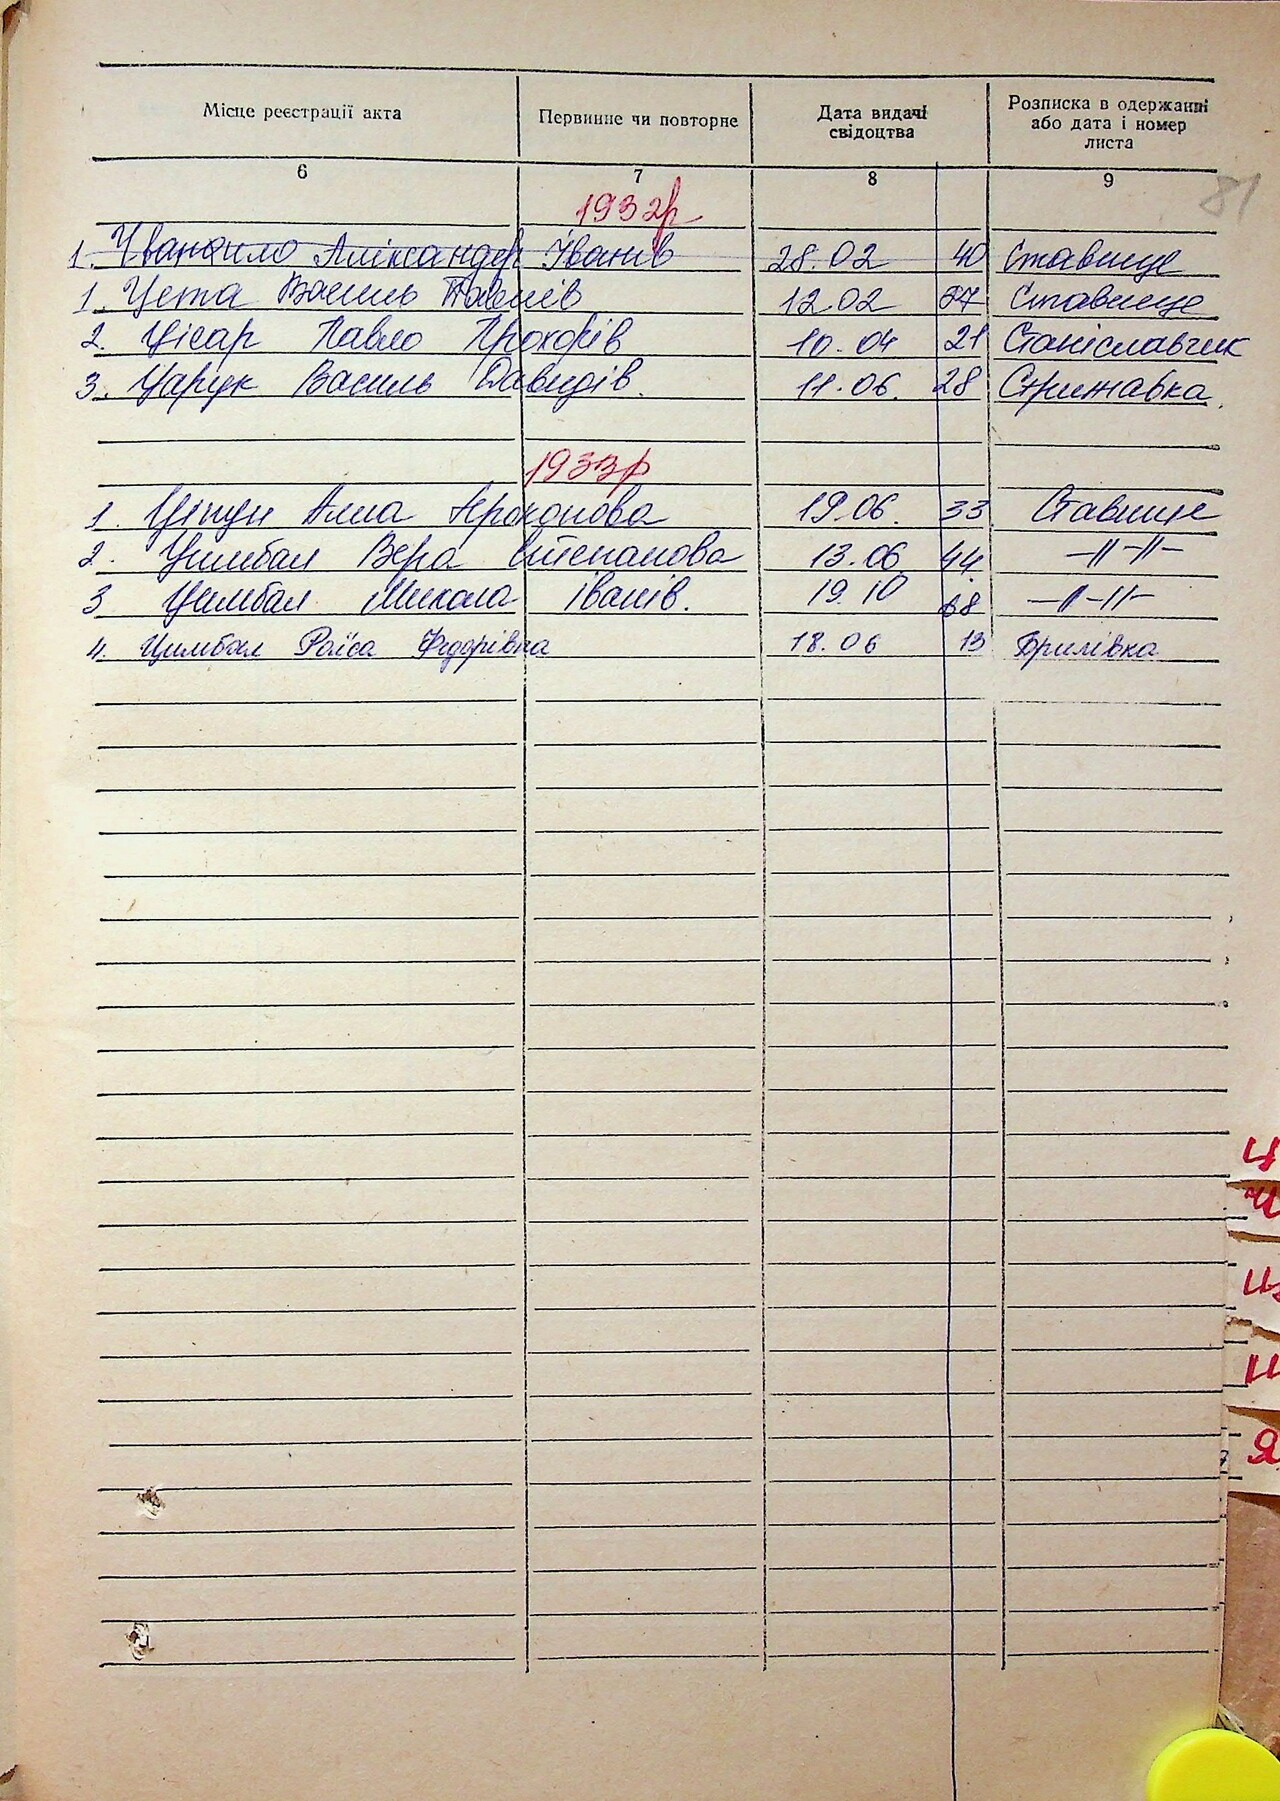 Місце реєстрації акта Первинне чи повторне Дата видачі свідоцтва Розписка в одержанні або дата і номер листа
6 7 8 9
81
1932р
1. Іванів 28.02 40 Ставище
1. Цета Василь Павлів 12.02 37 Ставище
2. Цісар Павло Прохорів 10.04 21 Станіславчик
3. Царук Василь Давидів. 11.06. 28 Стрижавка.
1933р
1. Ціпун Алла Прокопова 19.06. 33 Ставище
2. Цимбал Вера Степанова 13.06 44 –//–//–
3 Цимбал Микола Іванів. 19.10 68 –//–//–
4. Цимбал Раїса Федорівна 18.06 13 Брилівка
Ц
Ч
Я